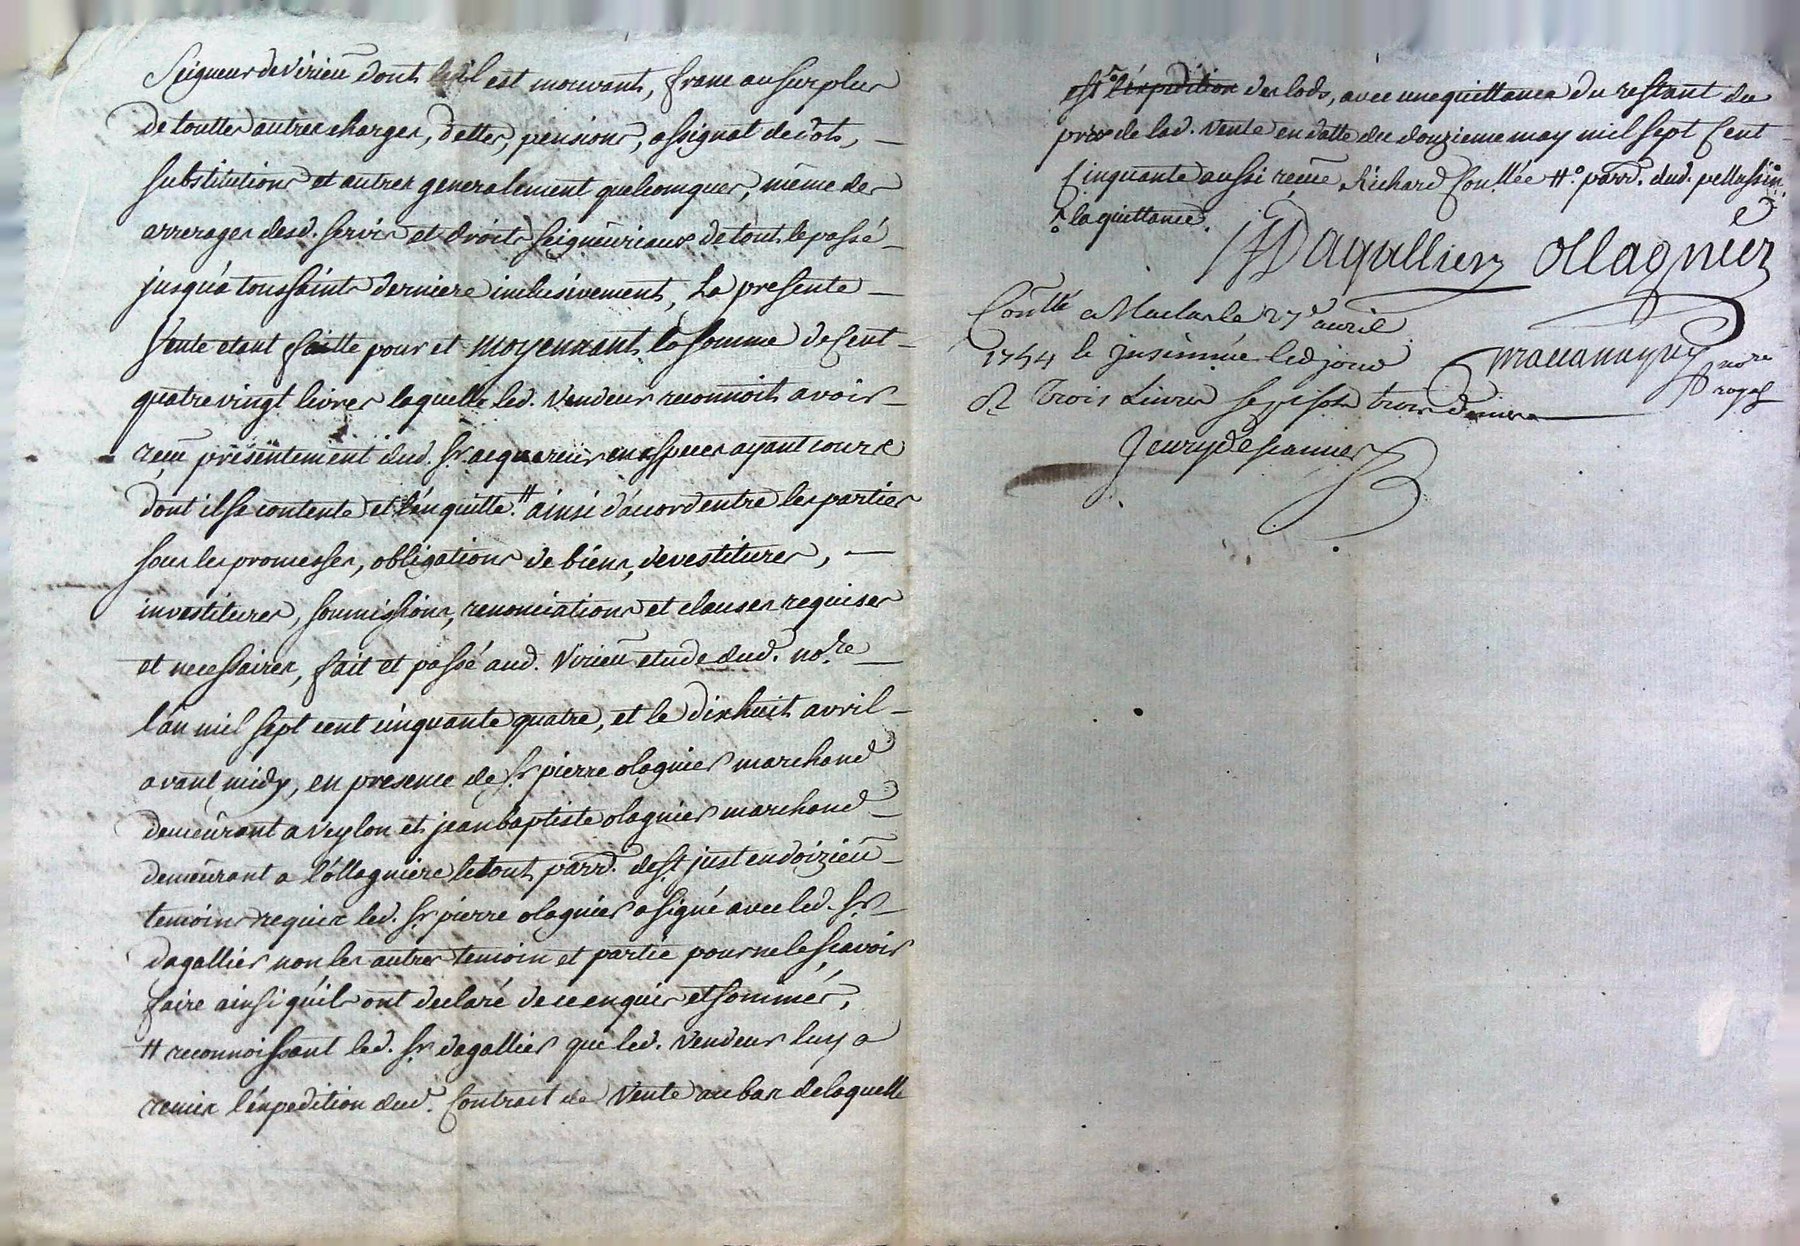 Seigneur de Virieu dont led. est mouvant, franc au surplus
de touttes autres charges, dettes, pensions, assignat de dots, —
substitutions et autres generalement quelconques, même des
arrerages desd. servis et droits seigneuriaux de tout le passé —
jusqu'a toussaints derniere inclusivement, La presente —
Vente etant faitte pour et moyennant la somme de Cent —
quatre vingt livres laquelle led. Vendeur reconnoit avoir —
receu présentement dud. Sr. acquereur en especes ayant cours
dont il se contente et l'en quitte # ainsi d'acord entre les parties
sous les promesses, obligations de biens, devestitures, —
investitures, soumissions, renonciations et clauses requises
et necessaires, fait et passé aud. Virieu etude dud. no.re —
l'an mil sept cent cinquante quatre, et le dixhuit avril —
avant midy, en presence de Sr. pierre olagnier marchand
demeurant a Veylon et jean baptiste olagnier marchand —
demeurant a l'ollagniere le tout parr. de St. just en doizieu —
temoins requis led. Sr. pierre olagnier a signé avec led. Sr. —
dagallier non les autres temoin et partie pour ne le sçavoir
faire ainsi qu'ils ont declaré de ce enquis et sommés,
# reconnoissant led. Sr. dagallier que led. Vendeur luy a
remis l'expedition dud. Contract de Vente au bas de laquelle
est l'expedition des lods, avec une quittance du restant du
prix de lad. Vente en datte du douzieme may mil sept Cent —
Cinquante aussi receüe Richard Conllée # parr. dud. pellussin.
la quittance.
Dagallier Ollagnier
Contllé a Maclas le 27e avril
1754 le jnsinnüe led jour
Rz Trois Livres sept sols trois deniers
nore
royal